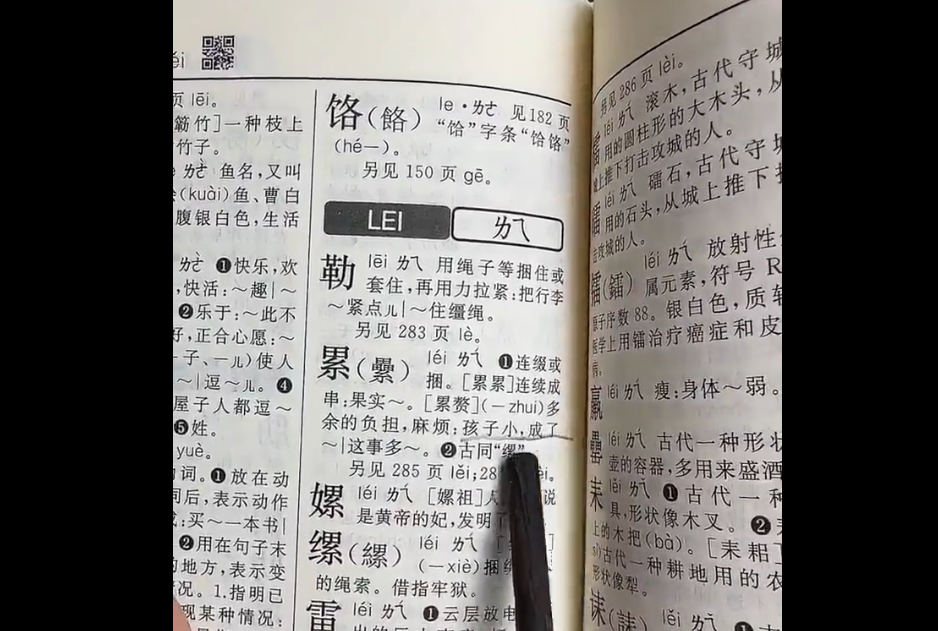 页 lēi。
竹]一种枝上
竹子。
鱼名,又叫
(kuài)鱼、曹白
腹银白色,生活
ㄌㄜˋ ❶快乐,欢
,快活:～趣|～
❷乐于:～此不
好,正合心愿:～
子、一儿)使人
～|逗～儿。❹
屋子人都逗～
❺姓。
yuè。
词。❶放在动
词后,表示动作
:买～一本书|
❷用在句子末
的地方,表示变
况。1.指明已
现某种情况:
饹(餎) le ·ㄌㄜ 见182页
“饸”字条“饸饹”
(hé—)。
另见 150 页 gē。
LEI ㄌㄟ
勒 lēi ㄌㄟ 用绳子等捆住或
套住,再用力拉紧:把行李
～紧点儿|～住缰绳。
另见 283 页 lè。
累(纍) léi ㄌㄟˊ ❶连缀或
捆。[累累]连续成
串:果实～。[累赘](—zhui)多
余的负担,麻烦:孩子小,成了
～|这事多～。❷古同“缧”
另见 285 页 lěi;28
嫘 léi ㄌㄟˊ [嫘祖]人 说
是黄帝的妃,发明了
缧(縲) léi ㄌㄟˊ
(—xiè)捆绑
的绳索。借指牢狱。
雷 léi ㄌㄟˊ ❶云层放电
另见 286 页 lèi。
léi ㄌㄟˊ 滚木,古代守城
用的圆柱形的大木头,从
城上推下打击攻城的人。
礌 léi ㄌㄟˊ 礌石,古代守城
用的石头,从城上推下打
击攻城的人。
镭(鐳) léi ㄌㄟˊ 放射性
属元素,符号 R
原子序数 88。银白色,质软
医学上用镭治疗癌症和皮
病。
羸 léi ㄌㄟˊ 瘦:身体～弱。
罍 léi ㄌㄟˊ 古代一种形状
壶的容器,多用来盛酒
耒 lěi ㄌㄟˇ ❶古代一种
具,形状像木叉。❷
上的木把(bà)。[耒耜]
sì)古代一种耕地用的农
形状像犁。
诔(誄) lěi ㄌㄟˇ ❶